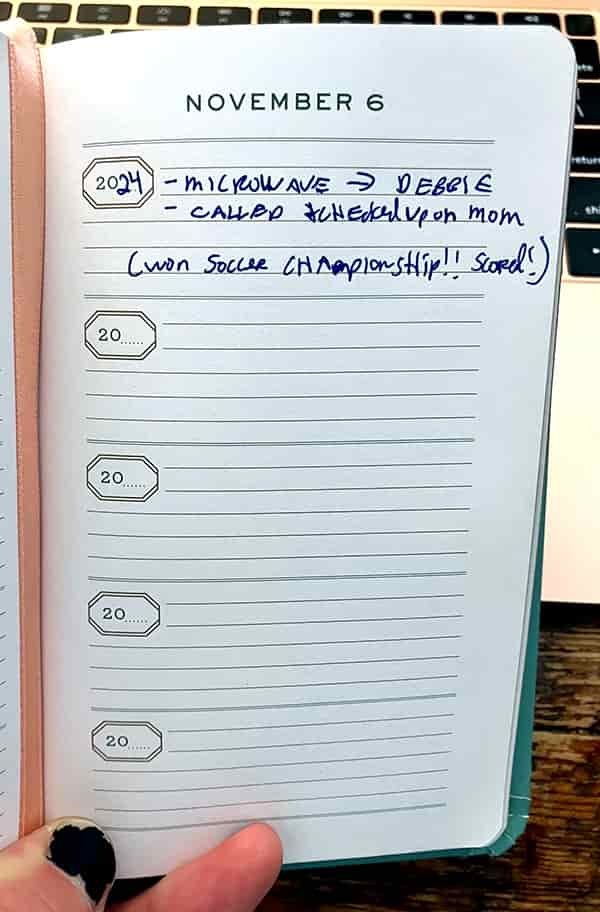 NOVEMBER 6
2024 - MICROWAVE → DEBBIE
- CALLED & CHECKED UP ON MOM
(WON SOCCER CHAMPIONSHIP!! SCORED!)
20......
20......
20......
20......
return